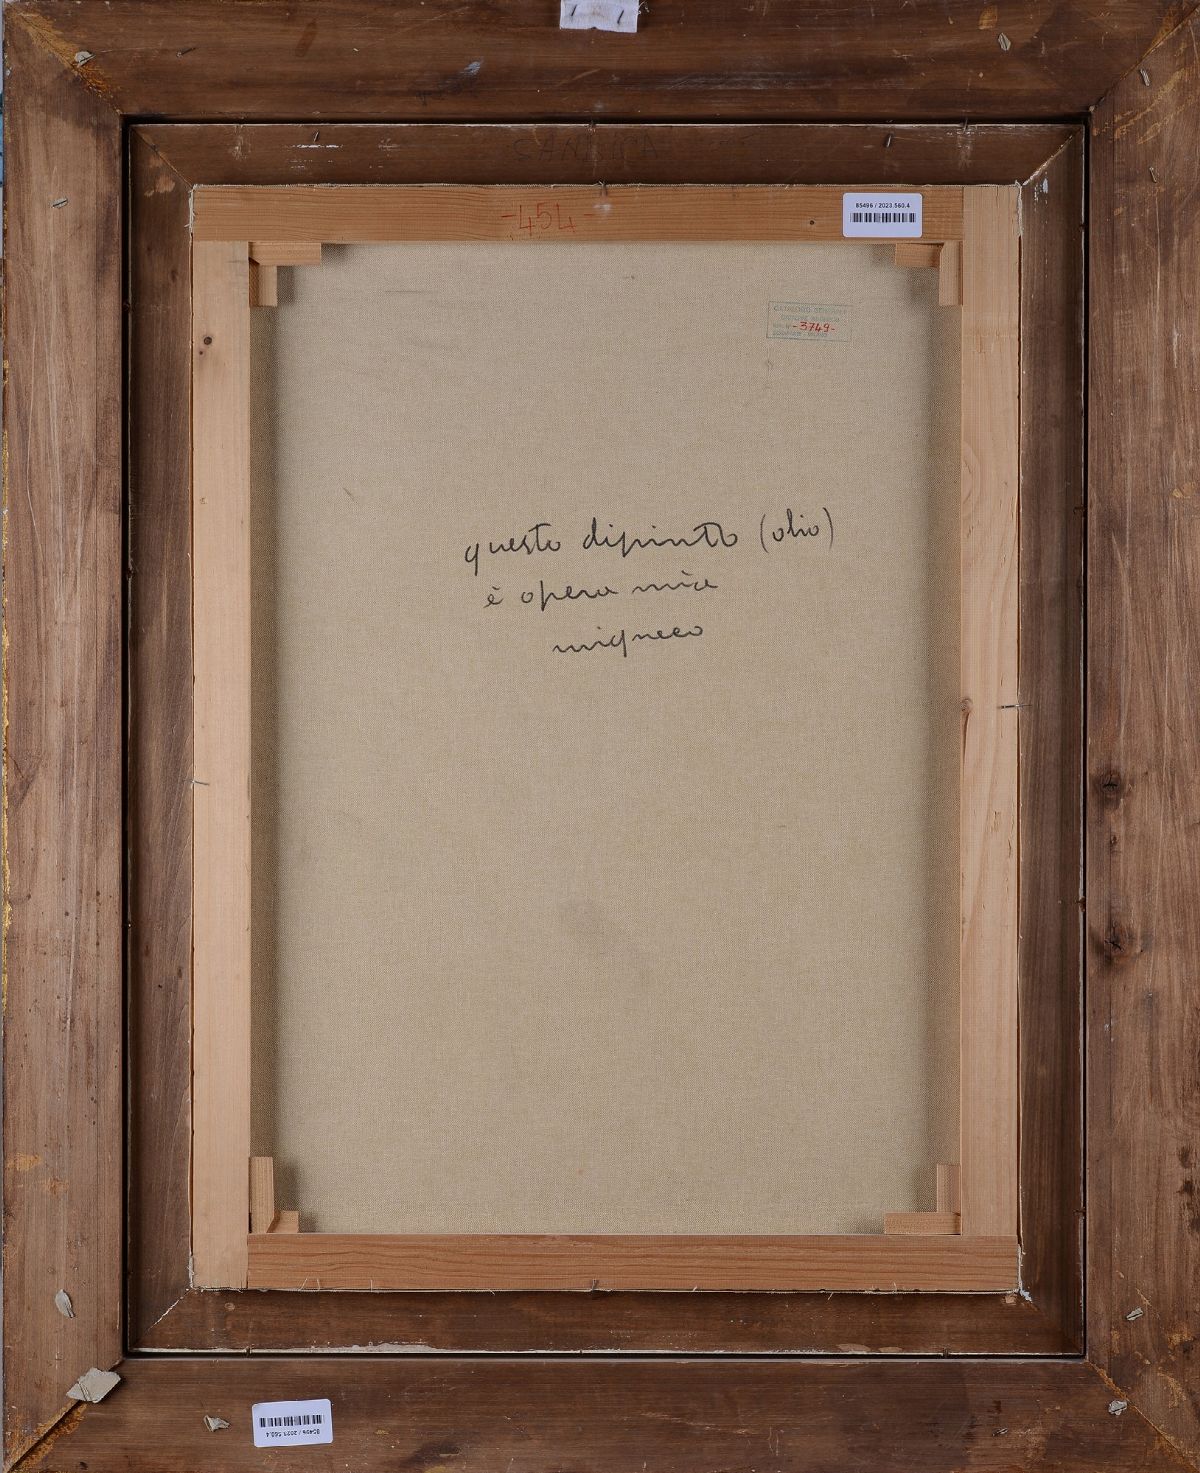 -454-
85496 / 2023.560.4
CATALOGO GENERALE
-3749-
questo dipinto (olio)
è opera mia
migneco
85496 / 2023.560.4